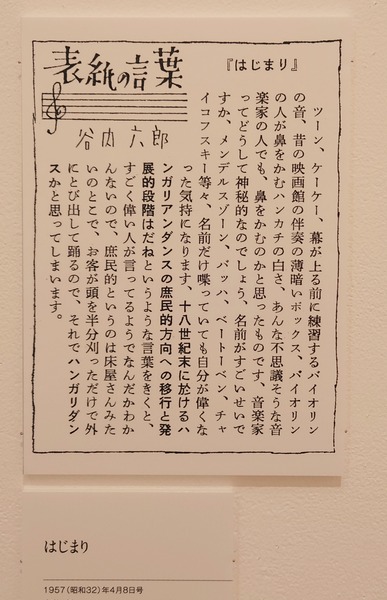 表紙の言葉
谷内六郎
『はじまり』
ツーン、ケーケー、幕が上る前に練習するバイオリン
の音、昔の映画館の伴奏の薄暗いボックス、バイオリン
の人が鼻をかむハンカチの白さ、あんな不思議そうな音
楽家の人でも、鼻をかむのかと思ったものです、音楽家
ってどうして神秘的なのでしょう、名前がすごいせいで
すか、メンデルスゾーン、バッハ、ベートーベン、チャ
イコフスキー等々、名前だけ喋っていても自分が偉くな
った気持になります、十八世紀末に於けるハ
ンガリアンダンスの庶民的方向への移行と発
展的段階はだねというような言葉をきくと、
すごく偉い人が言ってるようでなんだかわか
んないので、庶民的というのは床屋さんみた
いのとこで、お客が頭を半分刈っただけで外
にとび出して踊るので、それでハンガリダン
スかと思ってしまいます。
はじまり
1957(昭和32)年4月8日号